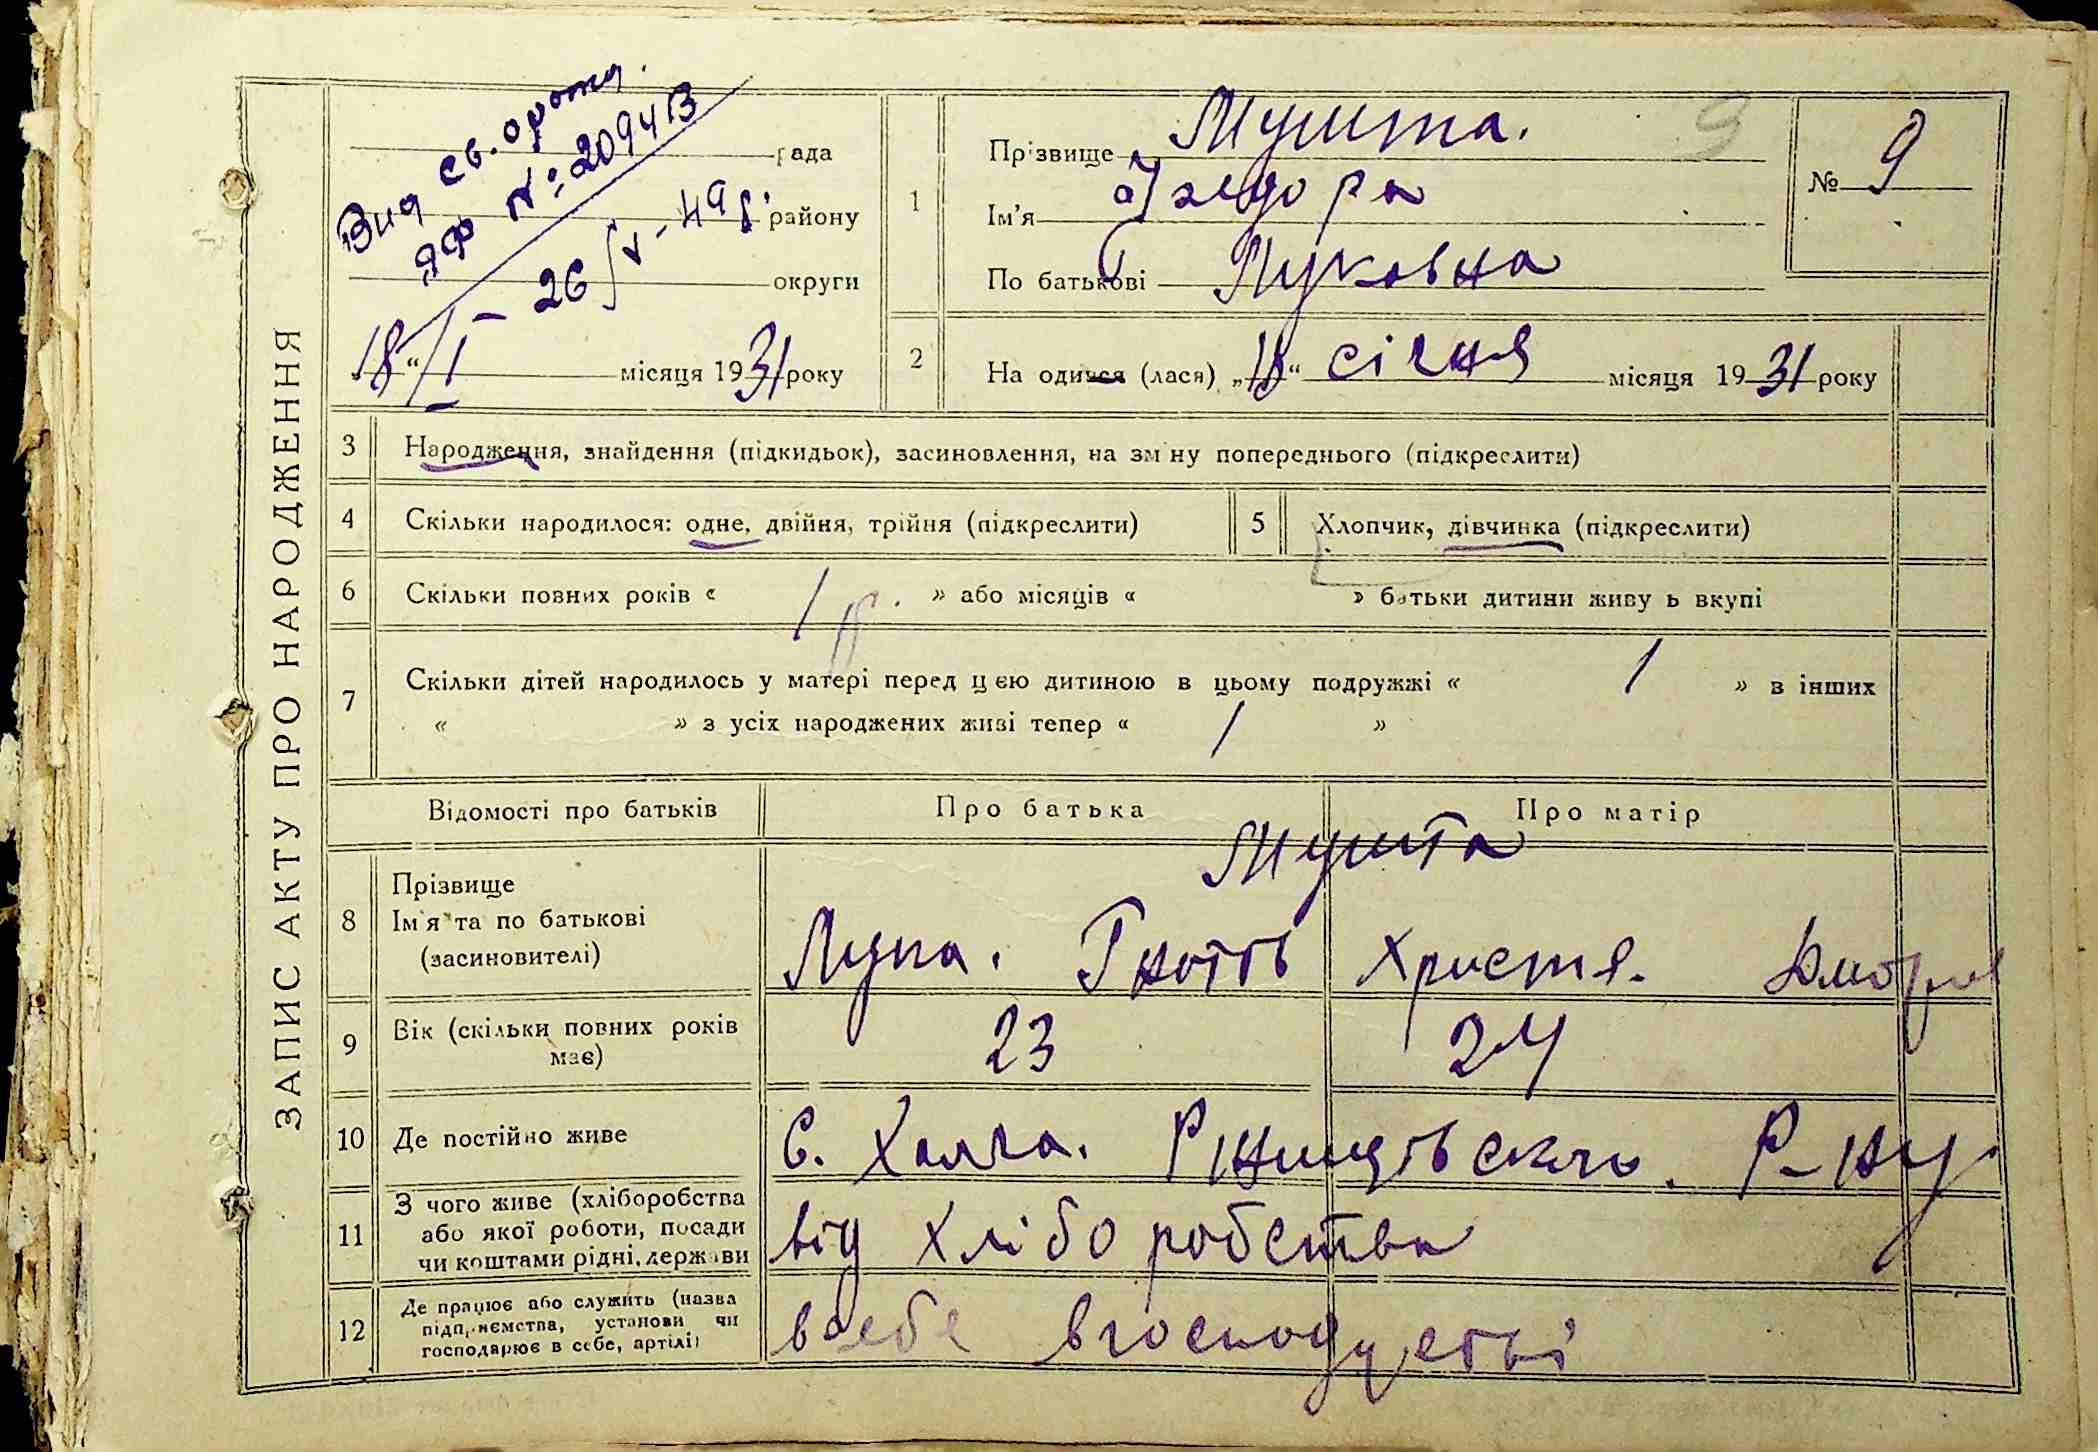 ЗАПИС АКТУ ПРО НАРОДЖЕННЯ
Вид св.
ЯФ №: 209413
26/V-49 р.
рада
району
округи
18 "/I місяця 1931 року
1 Прізвище Мушта.
Ім'я Ізидора
По батькові Луковна
№ 9
9
2 На одився (лася) „18“ січня місяця 1931 року
3 Народження, знайдення (підкидьок), засиновлення, на зміну попереднього (підкреслити)
4 Скільки народилося: одне, двійня, трійня (підкреслити)
5 Хлопчик, дівчинка (підкреслити)
6 Скільки повних років « 1 р. » або місяців « » батьки дитини живу ь вкупі
7 Скільки дітей народилось у матері перед цією дитиною в цьому подружжі « 1 » в інших
« » з усіх народжених живі тепер « 1 »
Відомості про батьків Про батька Про матір
Мушта
8 Прізвище
Ім'я та по батькові
(засиновителі)
Лука. Гнатів Христя.
9 Вік (скільки повних років
має)
23 24
10 Де постійно живе С. Халча. Ржищівського. Р-ну
11 З чого живе (хліборобства
або якої роботи, посади
чи коштами рідні, держави
від хліборобства
12 Де працює або служить (назва
підприємства, установи чи
господарює в себе, артілі)
в себе в господарстві